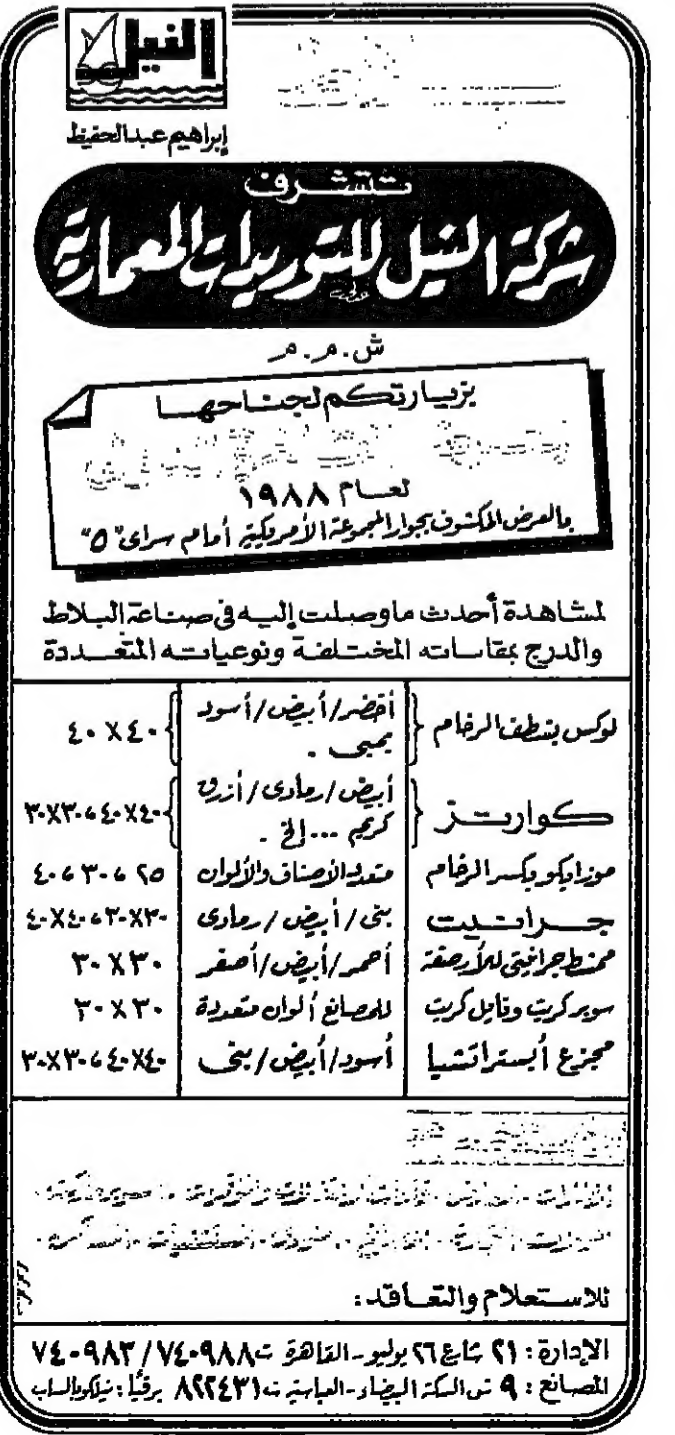 النيل
إبراهيم عبدالحفيظ
تتشرف
شركة النيل للتوريدات المعمارية
ش.م.م
بزيارتكم لجناحها
لعام ١٩٨٨
بالعرض المكشوف بجوار المجموعة الأمريكية أمام سراى "٥"
لمشاهدة أحدث ماوصلت إليه فى صناعة البلاط
والدرج بمقاساته المختلفة ونوعياته المتعددة
لوكس بقطف الرخام أخضر/أبيض/أسود ٤٠X٤٠
يمبى .
كوارتز أبيض/رمادى/أزرق ٤٠X٤٠، ٣٠X٣٠
كريم ... إلخ .
موزايكو وكسر الرخام متعدد الأصناف والألوان ٢٥، ٣٠، ٤٠
جرانيت بنى/أبيض/رمادى ٣٠X٣٠، ٤٠X٤٠
ممشط جرافيتى للأرصفة أحمر/أبيض/أصفر ٣٠X٣٠
سوبر كريت وتايل كريت للمصانع ألوان متعددة ٣٠X٣٠
مجزع أبستراتشيا أسود/أبيض/بنى ٤٠X٤٠، ٣٠X٣٠
للاستعلام والتعاقد:
الإدارة: ٢١ شارع ٢٦ يوليو - القاهرة ت ٧٤٠٩٨٨ / ٧٤٠٩٨٣
المصانع: ٩ ش السكة البيضاء - العباسية ت ٨٢٢٤٣١ برقيًا: نيلكو بالساب